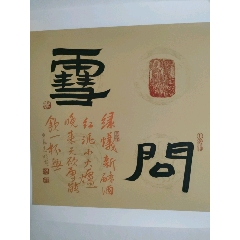 問
雪
緑蟻新醅酒
红泥小火爐
晚来天欲雪能
飲一杯無